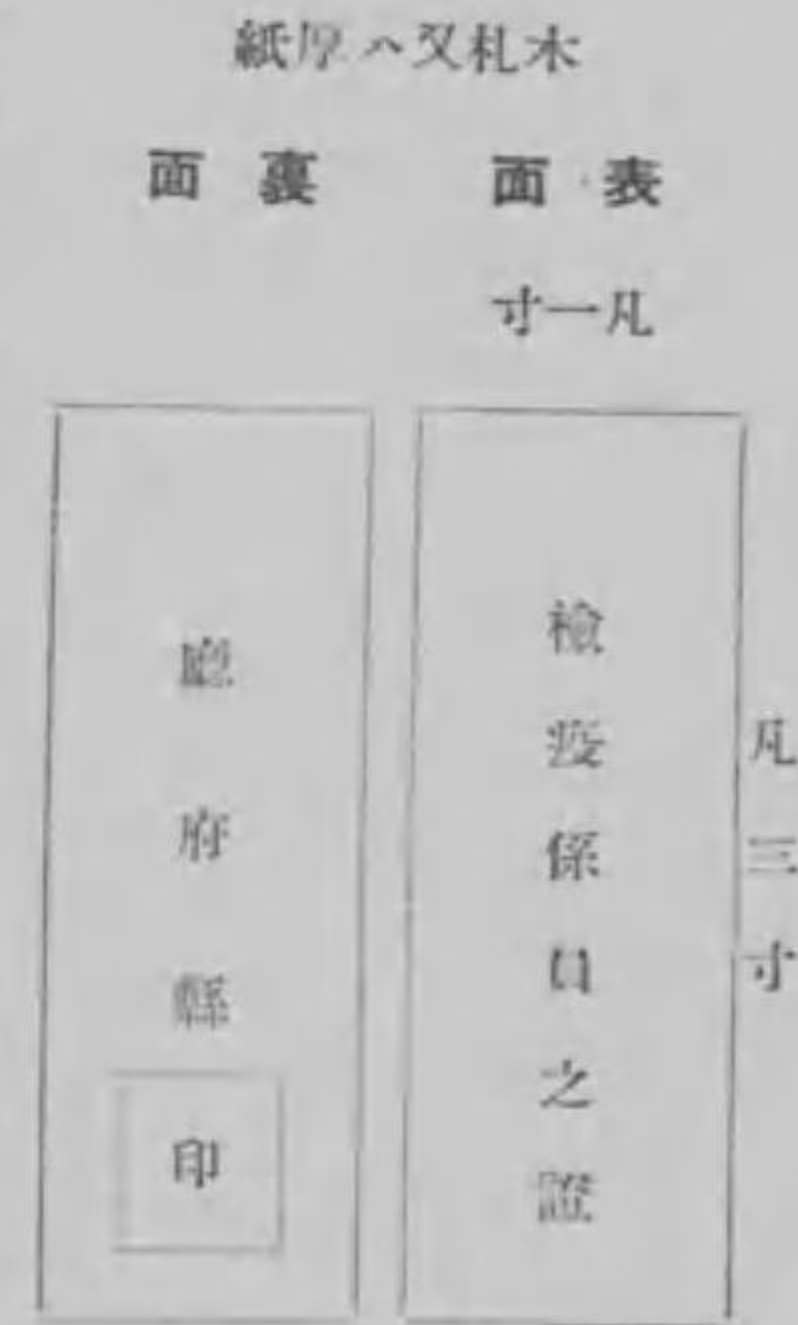 木札又ハ厚紙
表面
凡一寸
凡三寸
檢疫係員之證
裏面
廳府縣
印